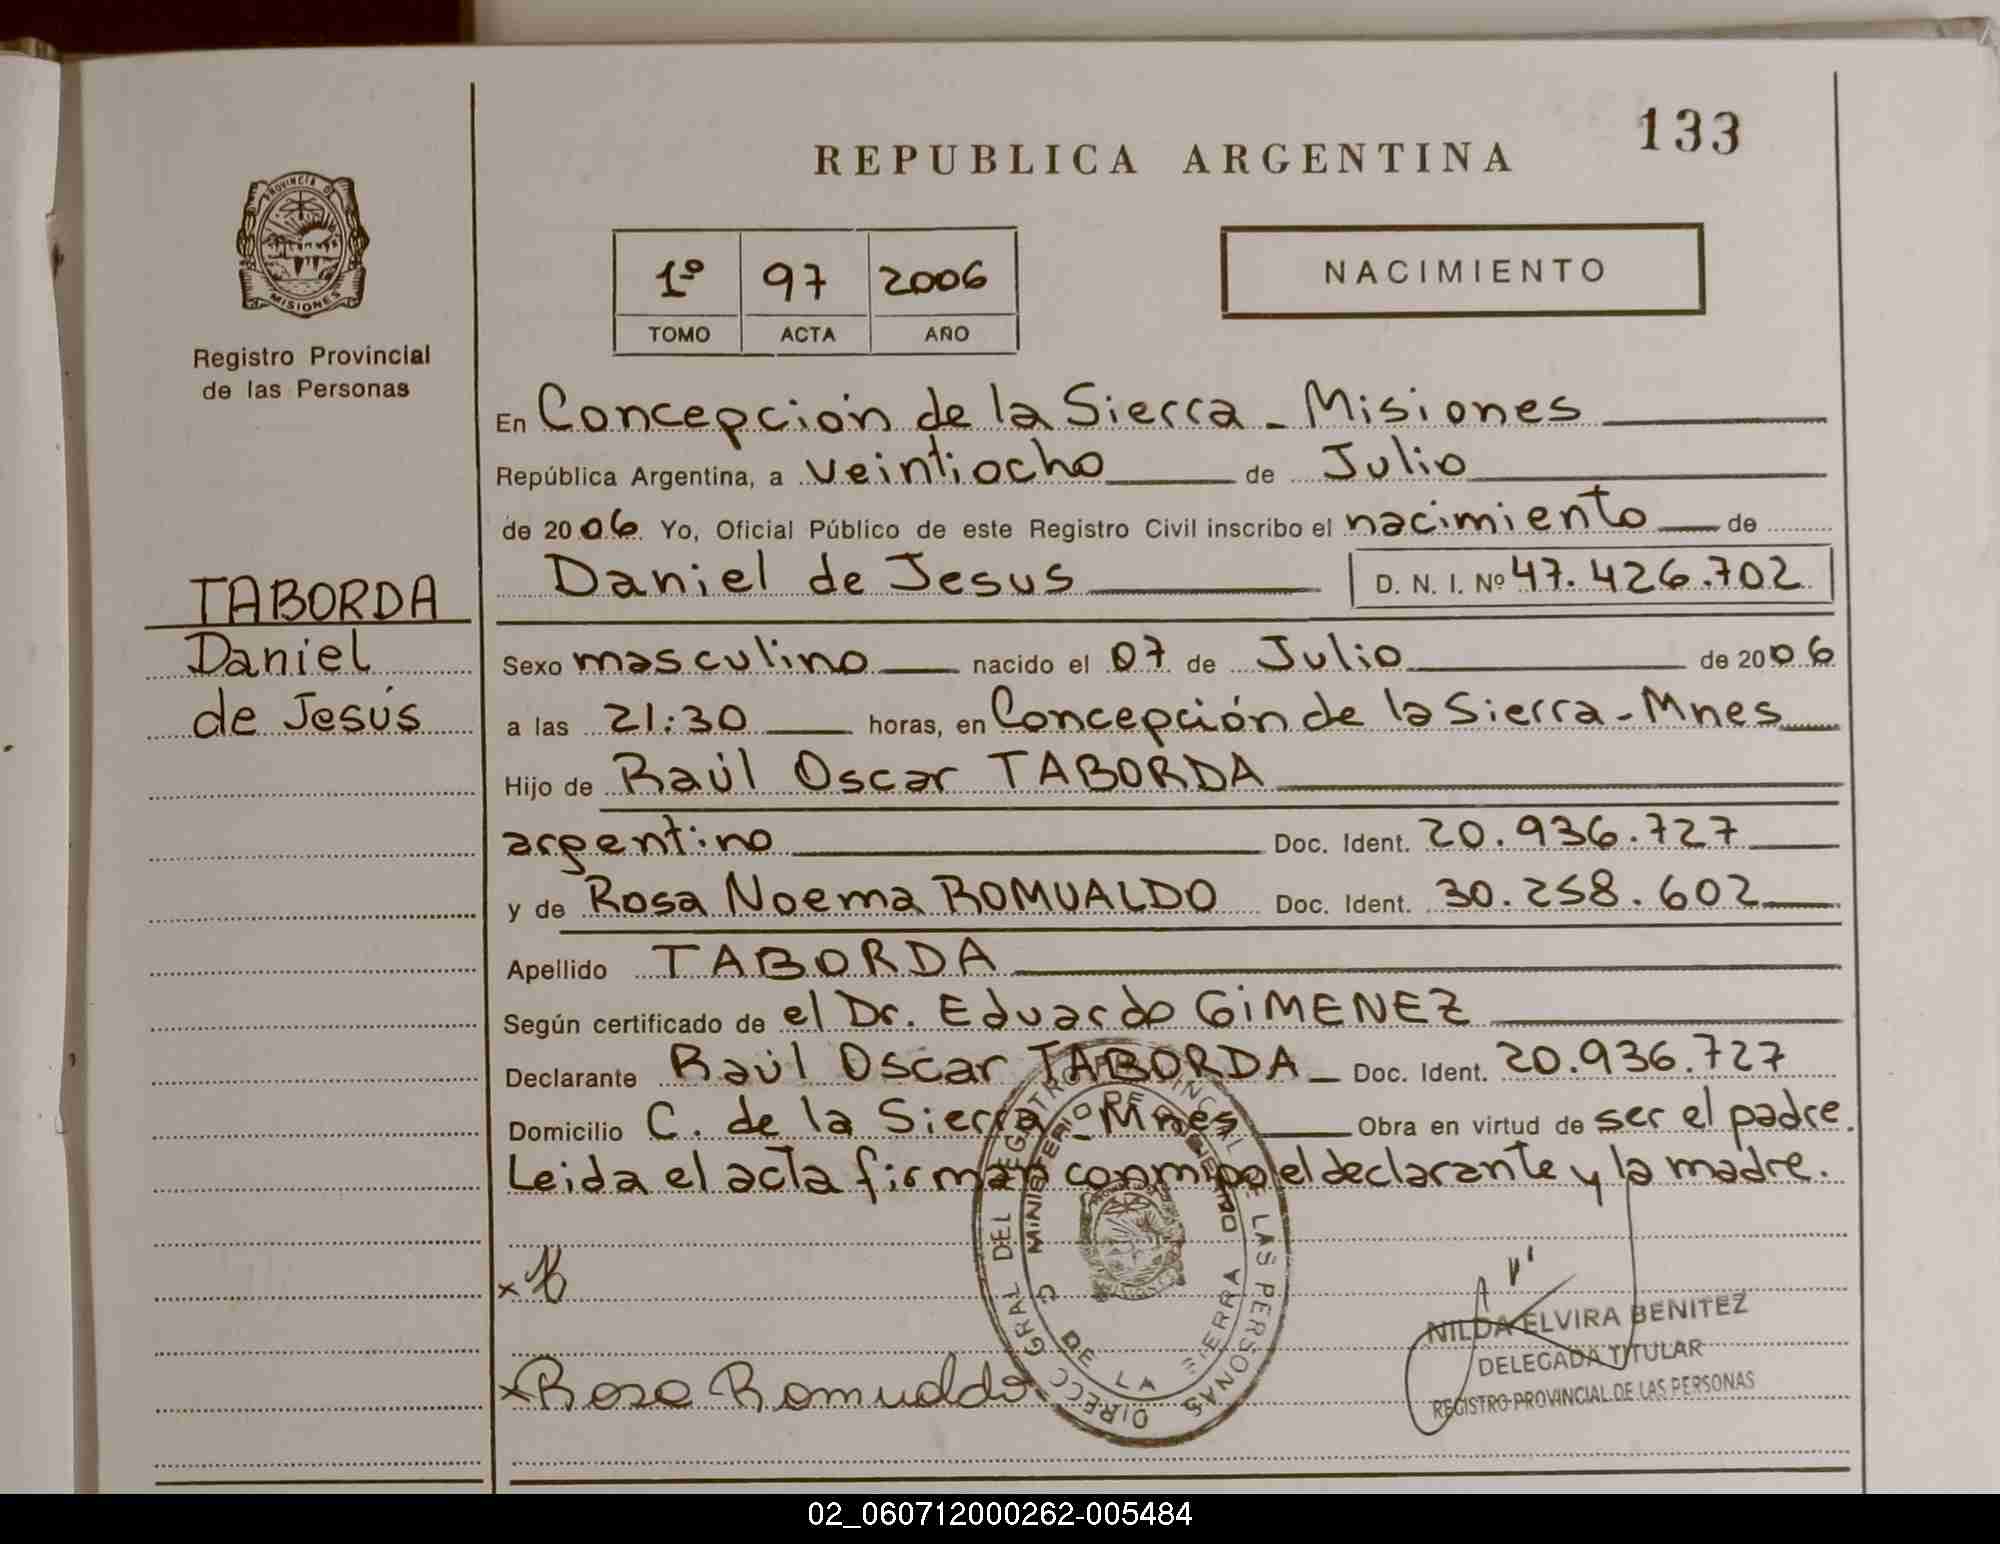 133
REPUBLICA ARGENTINA
PROVINCIA D
MISIONES
Registro Provincial
de las Personas
1º 97 2006
TOMO ACTA AÑO
NACIMIENTO
En Concepción de la Sierra - Misiones
República Argentina, a veintiocho de Julio
de 2006 Yo, Oficial Público de este Registro Civil inscribo el nacimiento de
Daniel de Jesus D. N. I. Nº 47.426.702
TABORDA
Daniel
de Jesús
Sexo masculino nacido el 07 de Julio de 2006
a las 21:30 horas, en Concepción de la Sierra - Mnes
Hijo de Raúl Oscar TABORDA
argentino Doc. Ident. 20.936.727
y de Rosa Noema ROMUALDO Doc. Ident. 30.258.602
Apellido TABORDA
Según certificado de el Dr. Eduardo GiMENEZ
Declarante Raúl Oscar TABORDA Doc. Ident. 20.936.727
Domicilio C. de la Sierra - Mnes Obra en virtud de ser el padre.
Leida el acta firman conmigo el declarante y la madre.
DIRECC GRAL DEL REGISTRO PROVINCIAL DE LAS PERSONAS
MINISTERIO DE GOBIERNO
C DE LA SIERRA
x
x Rosa Romualdo
NILDA ELVIRA BENITEZ
DELEGADA TITULAR
REGISTRO PROVINCIAL DE LAS PERSONAS
02_060712000262-005484